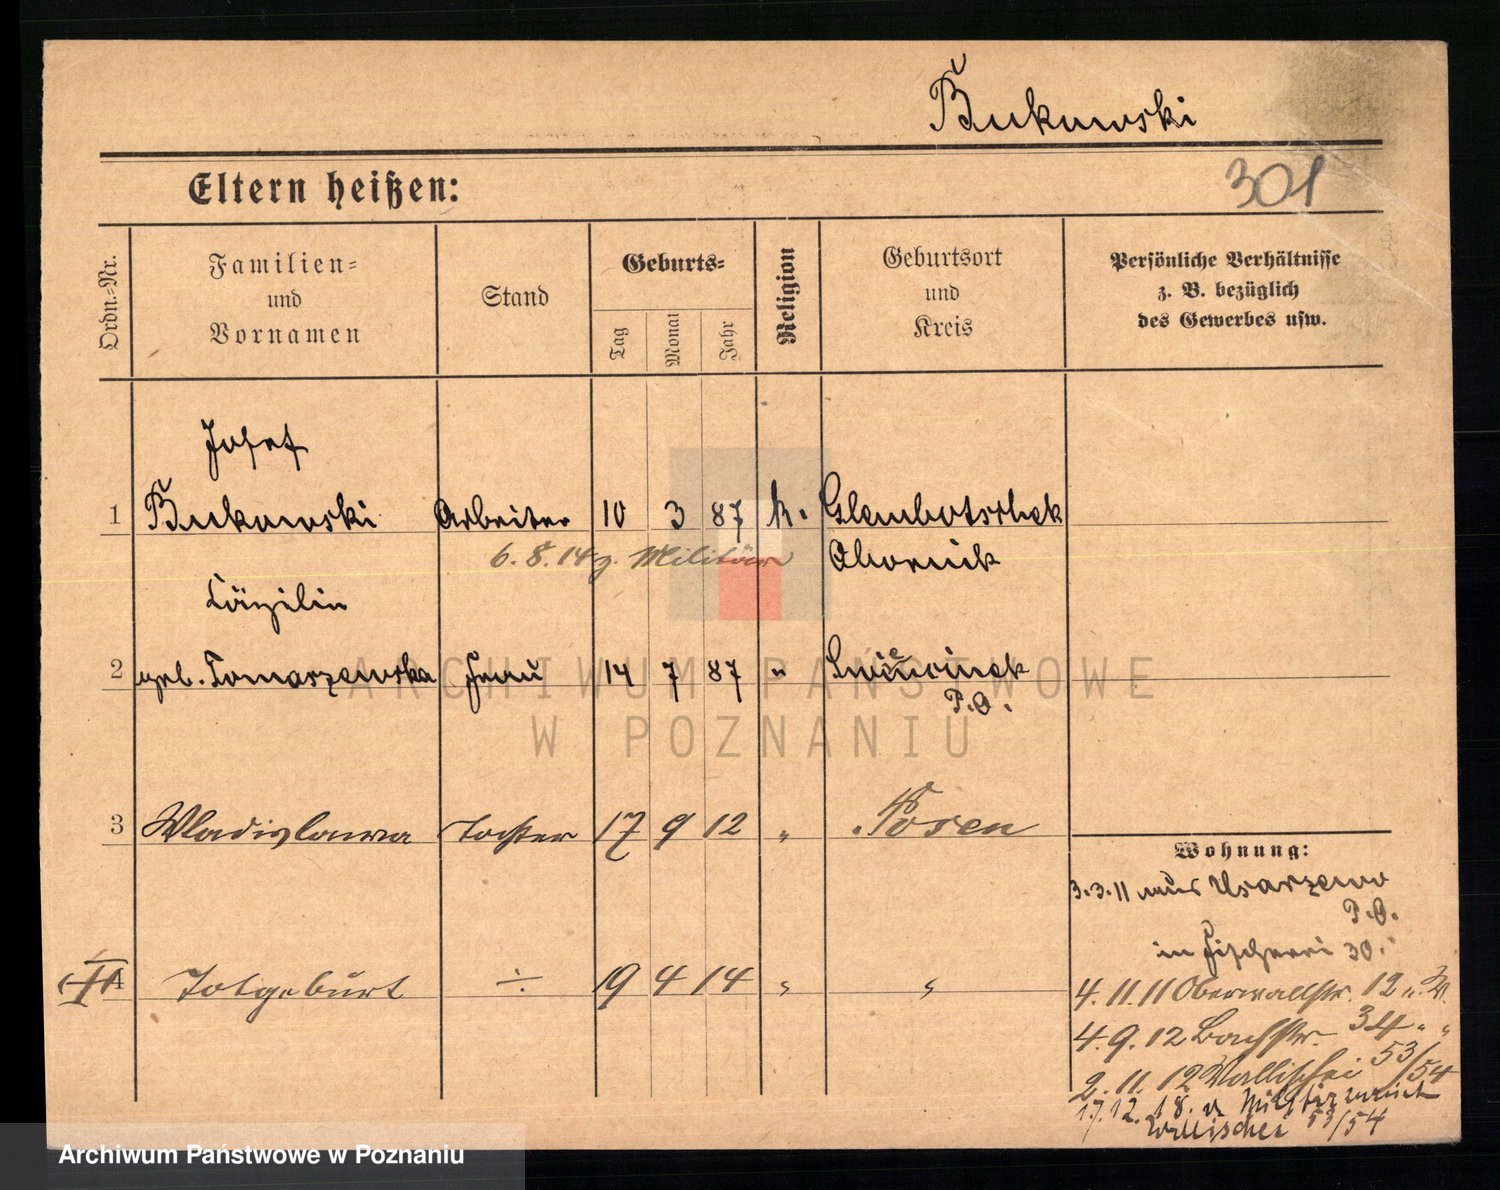 Bukowski
301
Eltern heißen:
Ordn.=Nr.
Familien=
und
Vornamen
Stand
Geburts=
Tag
Monat
Jahr
Religion
Geburtsort
und
Kreis
Persönliche Verhältnisse
z. B. bezüglich
des Gewerbes usw.
Josef
1 Bukowski Arbeiter 10 3 87 k. Glembotschek
6.8.14 z. Militär Obornik
Cäzilie
2 geb. Tomaszewska Frau 14 7 87 "
P.O.
3 Wladislawa Tochter 17 9 12 " Posen
Wohnung:
3.3.11 aus Usarzewo
P.O.
in Fischerei 30.
4 Totgeburt ÷ 19 4 14 " "
4.11.11 Oberwallstr. 12 u. W.
4.9.12 Bachstr. 34 " "
2.11.12 Wallischei 53/54
17.12.18. v. Militär zurück
Wallischei 53/54
ARCHIWUM PAŃSTWOWE
W POZNANIU
Archiwum Państwowe w Poznaniu